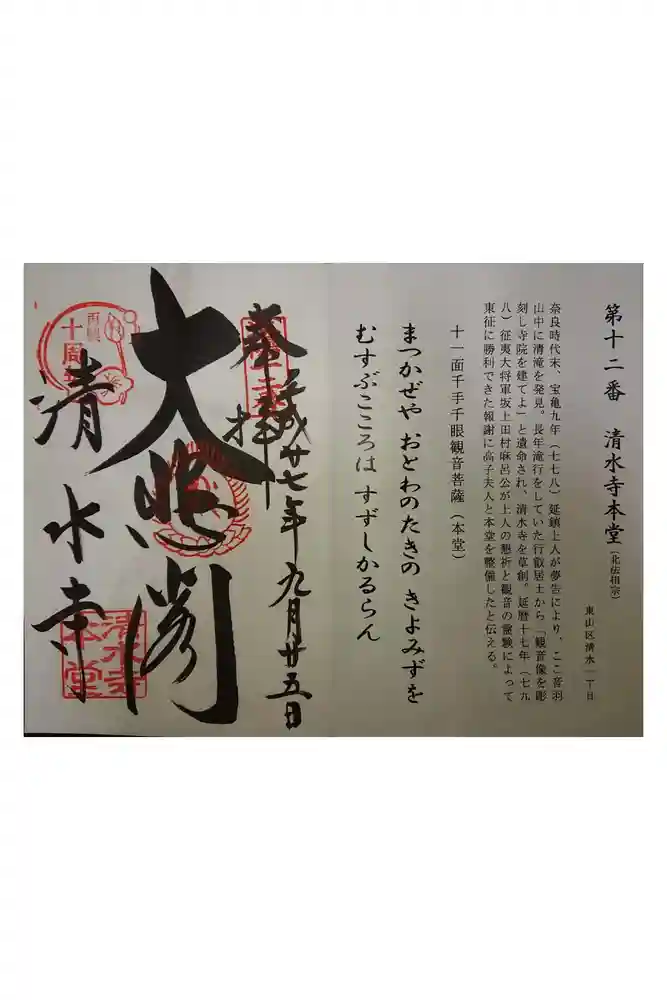 第十二番　清水寺本堂（北法相宗）
東山区清水一丁目
奈良時代末、宝亀九年（七七八）延鎮上人が夢告により、ここ音羽
山中に清滝を発見。長年滝行をしていた行叡居士から「観音像を彫
刻し寺院を建てよ」と遺命され、清水寺を草創。延暦十七年（七九
八）征夷大将軍坂上田村麻呂公が上人の懇祈と観音の霊験によって
東征に勝利できた報謝に高子夫人と本堂を整備したと伝える。
十一面千手千眼観音菩薩（本堂）
まつかぜや　おとわのたきの　きよみずを
むすぶこころは　すずしかるらん
奉拝
平成廿七年九月廿五日
大悲閣
清水寺
十周
清水寺
本堂